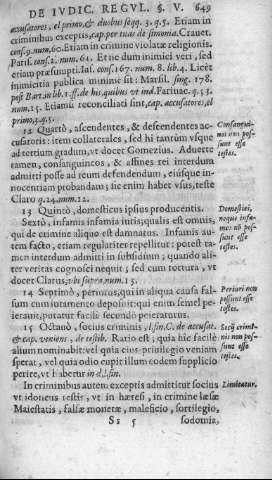 DE IVDIC. REGVL. §. V. 649
accusatores, el primo, & duobus seqq. 3. q. 5. Etiam in
criminibus exceptis, cap. per tuas de simonia. Crauet.
cons. 9. num. 60. Etiam in crimine violatæ religionis.
Paris. cons. 2. num. 61. Et ne dum inimici veri, sed
etiam præsumpti. Ias. cons. 167. num. 8. lib. 4. Licet
inimicitia publica minimè sit: Marsil. sing. 178.
post Bart. in l. ff. de his, quibus vt ind. Farinac. q. 53.
num. 15. Etiamsi reconciliati sint, cap. accusatores, el
primo, 3. q. 5.
12 Quartò, ascendentes, & descendentes ac-
cusatoris: item collaterales, sed hi tantùm vsque
ad tertium gradum, vt docet Gomezius. Aduerte
tamen, consanguineos, & affines rei interdum
admitti posse ad reum defendendum, eiúsque in-
nocentiam probandam; sic enim habet vsus, teste
Claro q. 24. num. 12.
Consangui-
nei non pos-
sunt esse
testes.
13 Quintò, domesticus ipsius producentis.
Sextò, infamis infamia iuris; qualis est omnis,
qui de crimine aliquo est damnatus. Infamis au-
tem facto, etiam regulariter repellitur: potest ta-
men interdum admitti in subsidium; quando ali-
ter veritas cognosci nequit, sed cum tortura, vt
docet Clarus, vbi supra, num. 13.
Domestici,
neque infa-
mes nō pos-
sunt esse
testes.
14 Septimò, periurus, qui in aliqua causa fal-
sum cum iuramento deposuit: qui enim semel pe-
ierauit, putatur facilè secundò peieraturus.
Periuri non
possunt esse
testes.
15 Octauò, socius criminis, l. fin. C. de accusat.
& cap. veniens, de testib. Ratio est; quia hic facilè
alium nominabit: vel quia eius priuilegio veniam
sperat, vel quia odio cupit illum eodem supplicio
perire, vt habetur in d. l. fin.
Socij crimi-
nis non pos-
sunt esse
testes.
In criminibus autem exceptis admittitur socius
vt idoneus testis, vt in hæresi, in crimine læsæ
Maiestatis, falsæ monetæ, maleficio, sortilegio,
Limitatur.
Ss 5 sodomia,